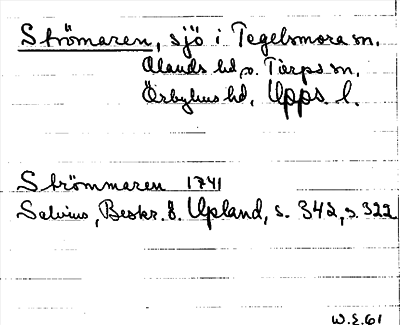 Strömaren, sjö i Tegelsmora sn.
Olands hd, o. Tärps sn.
Örbyhus hd, Upps. l.
Strömmaren 1741
Salvius, Beskr. ö. Upland, s. 342, s. 322
W.E.61